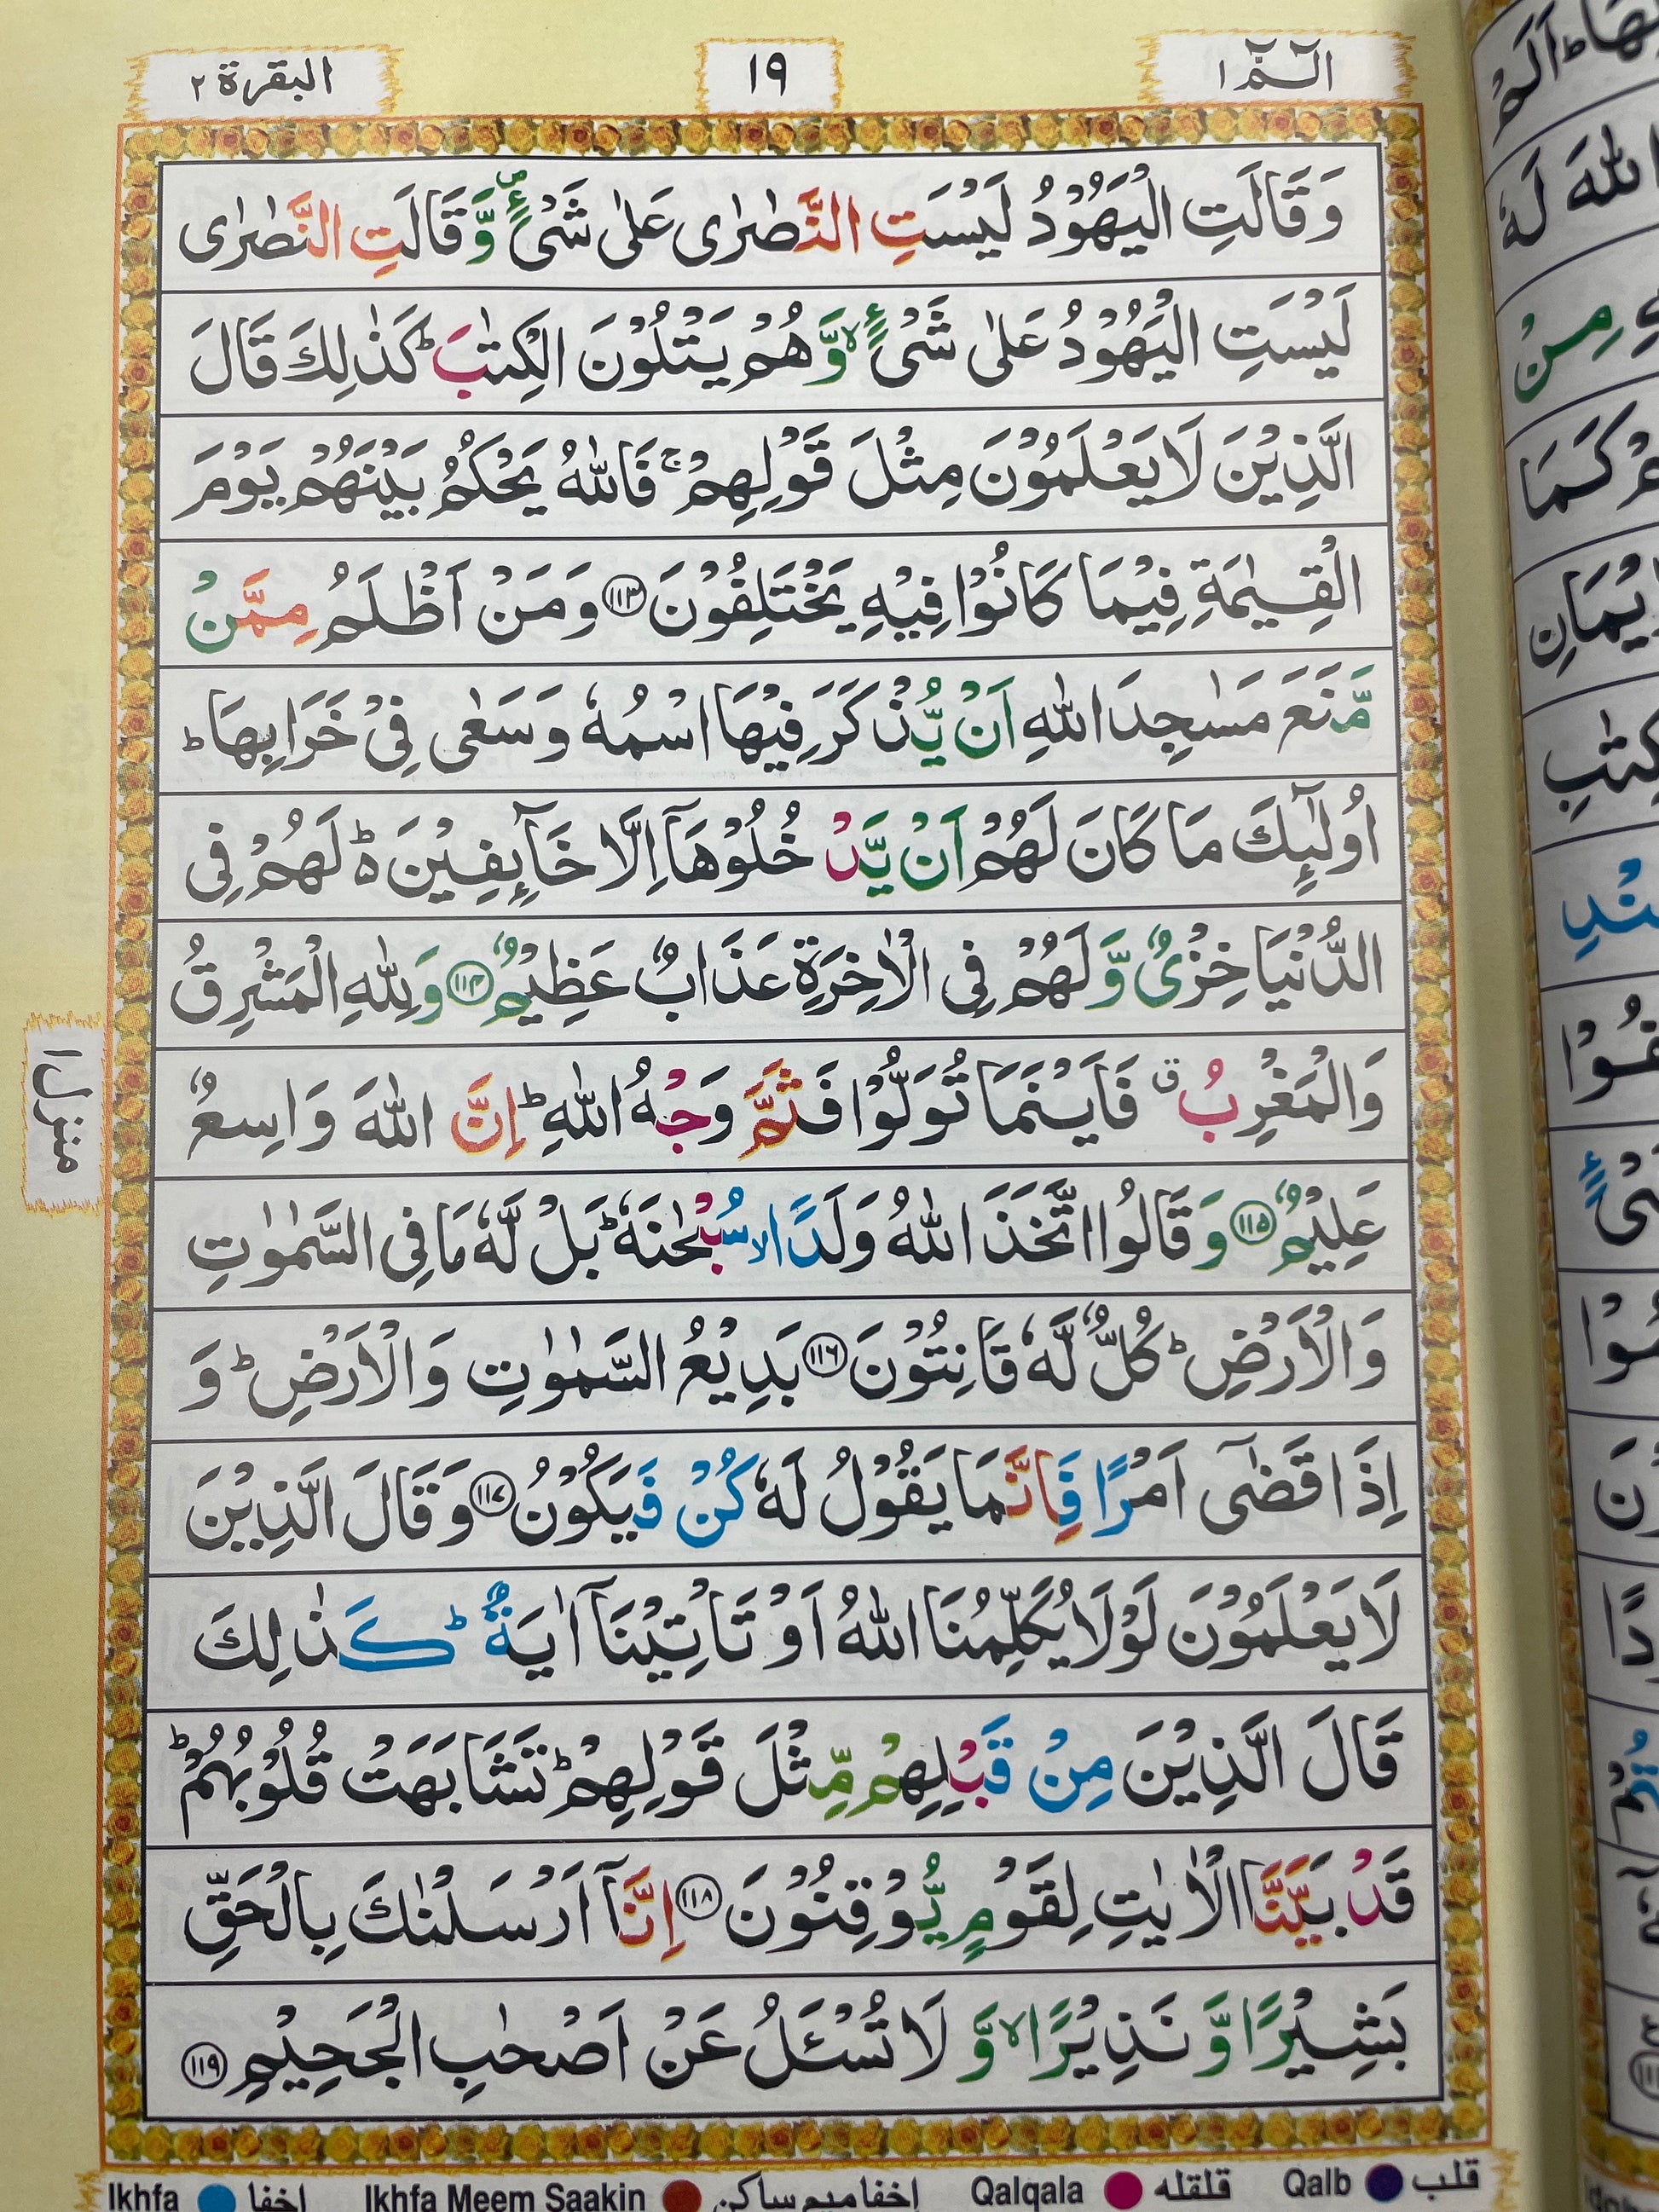 الٓـمّٓ ١
١٩
البقرة ٢
وَقَالَتِ الْيَهُوْدُ لَيْسَتِ النَّصٰرٰى عَلٰى شَىْءٍ ۪ وَّقَالَتِ النَّصٰرٰى
لَيْسَتِ الْيَهُوْدُ عَلٰى شَىْءٍ ۙ وَّهُمْ يَتْلُوْنَ الْكِتٰبَ ؕ كَذٰلِكَ قَالَ
الَّذِيْنَ لَا يَعْلَمُوْنَ مِثْلَ قَوْلِهِمْ ۚ فَاللّٰهُ يَحْكُمُ بَيْنَهُمْ يَوْمَ
الْقِيٰمَةِ فِيْمَا كَانُوْا فِيْهِ يَخْتَلِفُوْنَ ﴿١١٣﴾ وَمَنْ اَظْلَمُ مِمَّنْ
مَّنَعَ مَسٰجِدَ اللّٰهِ اَنْ يُّذْكَرَ فِيْهَا اسْمُهٗ وَسَعٰى فِىْ خَرَابِهَا ؕ
اُولٰٓئِكَ مَا كَانَ لَهُمْ اَنْ يَّدْخُلُوْهَآ اِلَّا خَآئِفِيْنَ ؕ۬ لَهُمْ فِى
الدُّنْيَا خِزْىٌ وَّلَهُمْ فِى الْاٰخِرَةِ عَذَابٌ عَظِيْمٌ ﴿١١٤﴾ وَلِلّٰهِ الْمَشْرِقُ
وَالْمَغْرِبُ ۗ فَاَيْنَمَا تُوَلُّوْا فَثَمَّ وَجْهُ اللّٰهِ ؕ اِنَّ اللّٰهَ وَاسِعٌ
عَلِيْمٌ ﴿١١٥﴾ وَقَالُوا اتَّخَذَ اللّٰهُ وَلَدًا ۙ سُبْحٰنَهٗ ؕ بَلْ لَّهٗ مَا فِى السَّمٰوٰتِ
وَالْاَرْضِ ؕ كُلٌّ لَّهٗ قَانِتُوْنَ ﴿١١٦﴾ بَدِيْعُ السَّمٰوٰتِ وَالْاَرْضِ ؕ وَ
اِذَا قَضٰٓى اَمْرًا فَاِنَّمَا يَقُوْلُ لَهٗ كُنْ فَيَكُوْنُ ﴿١١٧﴾ وَقَالَ الَّذِيْنَ
لَا يَعْلَمُوْنَ لَوْلَا يُكَلِّمُنَا اللّٰهُ اَوْ تَاْتِيْنَآ اٰيَةٌ ؕ كَذٰلِكَ
قَالَ الَّذِيْنَ مِنْ قَبْلِهِمْ مِّثْلَ قَوْلِهِمْ ؕ تَشَابَهَتْ قُلُوْبُهُمْ ؕ
قَدْ بَيَّنَّا الْاٰيٰتِ لِقَوْمٍ يُّوْقِنُوْنَ ﴿١١٨﴾ اِنَّآ اَرْسَلْنٰكَ بِالْحَقِّ
بَشِيْرًا وَّنَذِيْرًا ۙ وَّلَا تُسْـَٔلُ عَنْ اَصْحٰبِ الْجَحِيْمِ ﴿١١٩﴾
منزل ١
Ikhfa اخفا Ikhfa Meem Saakin إخفا ميم ساكن Qalqala قلقله Qalb قلب